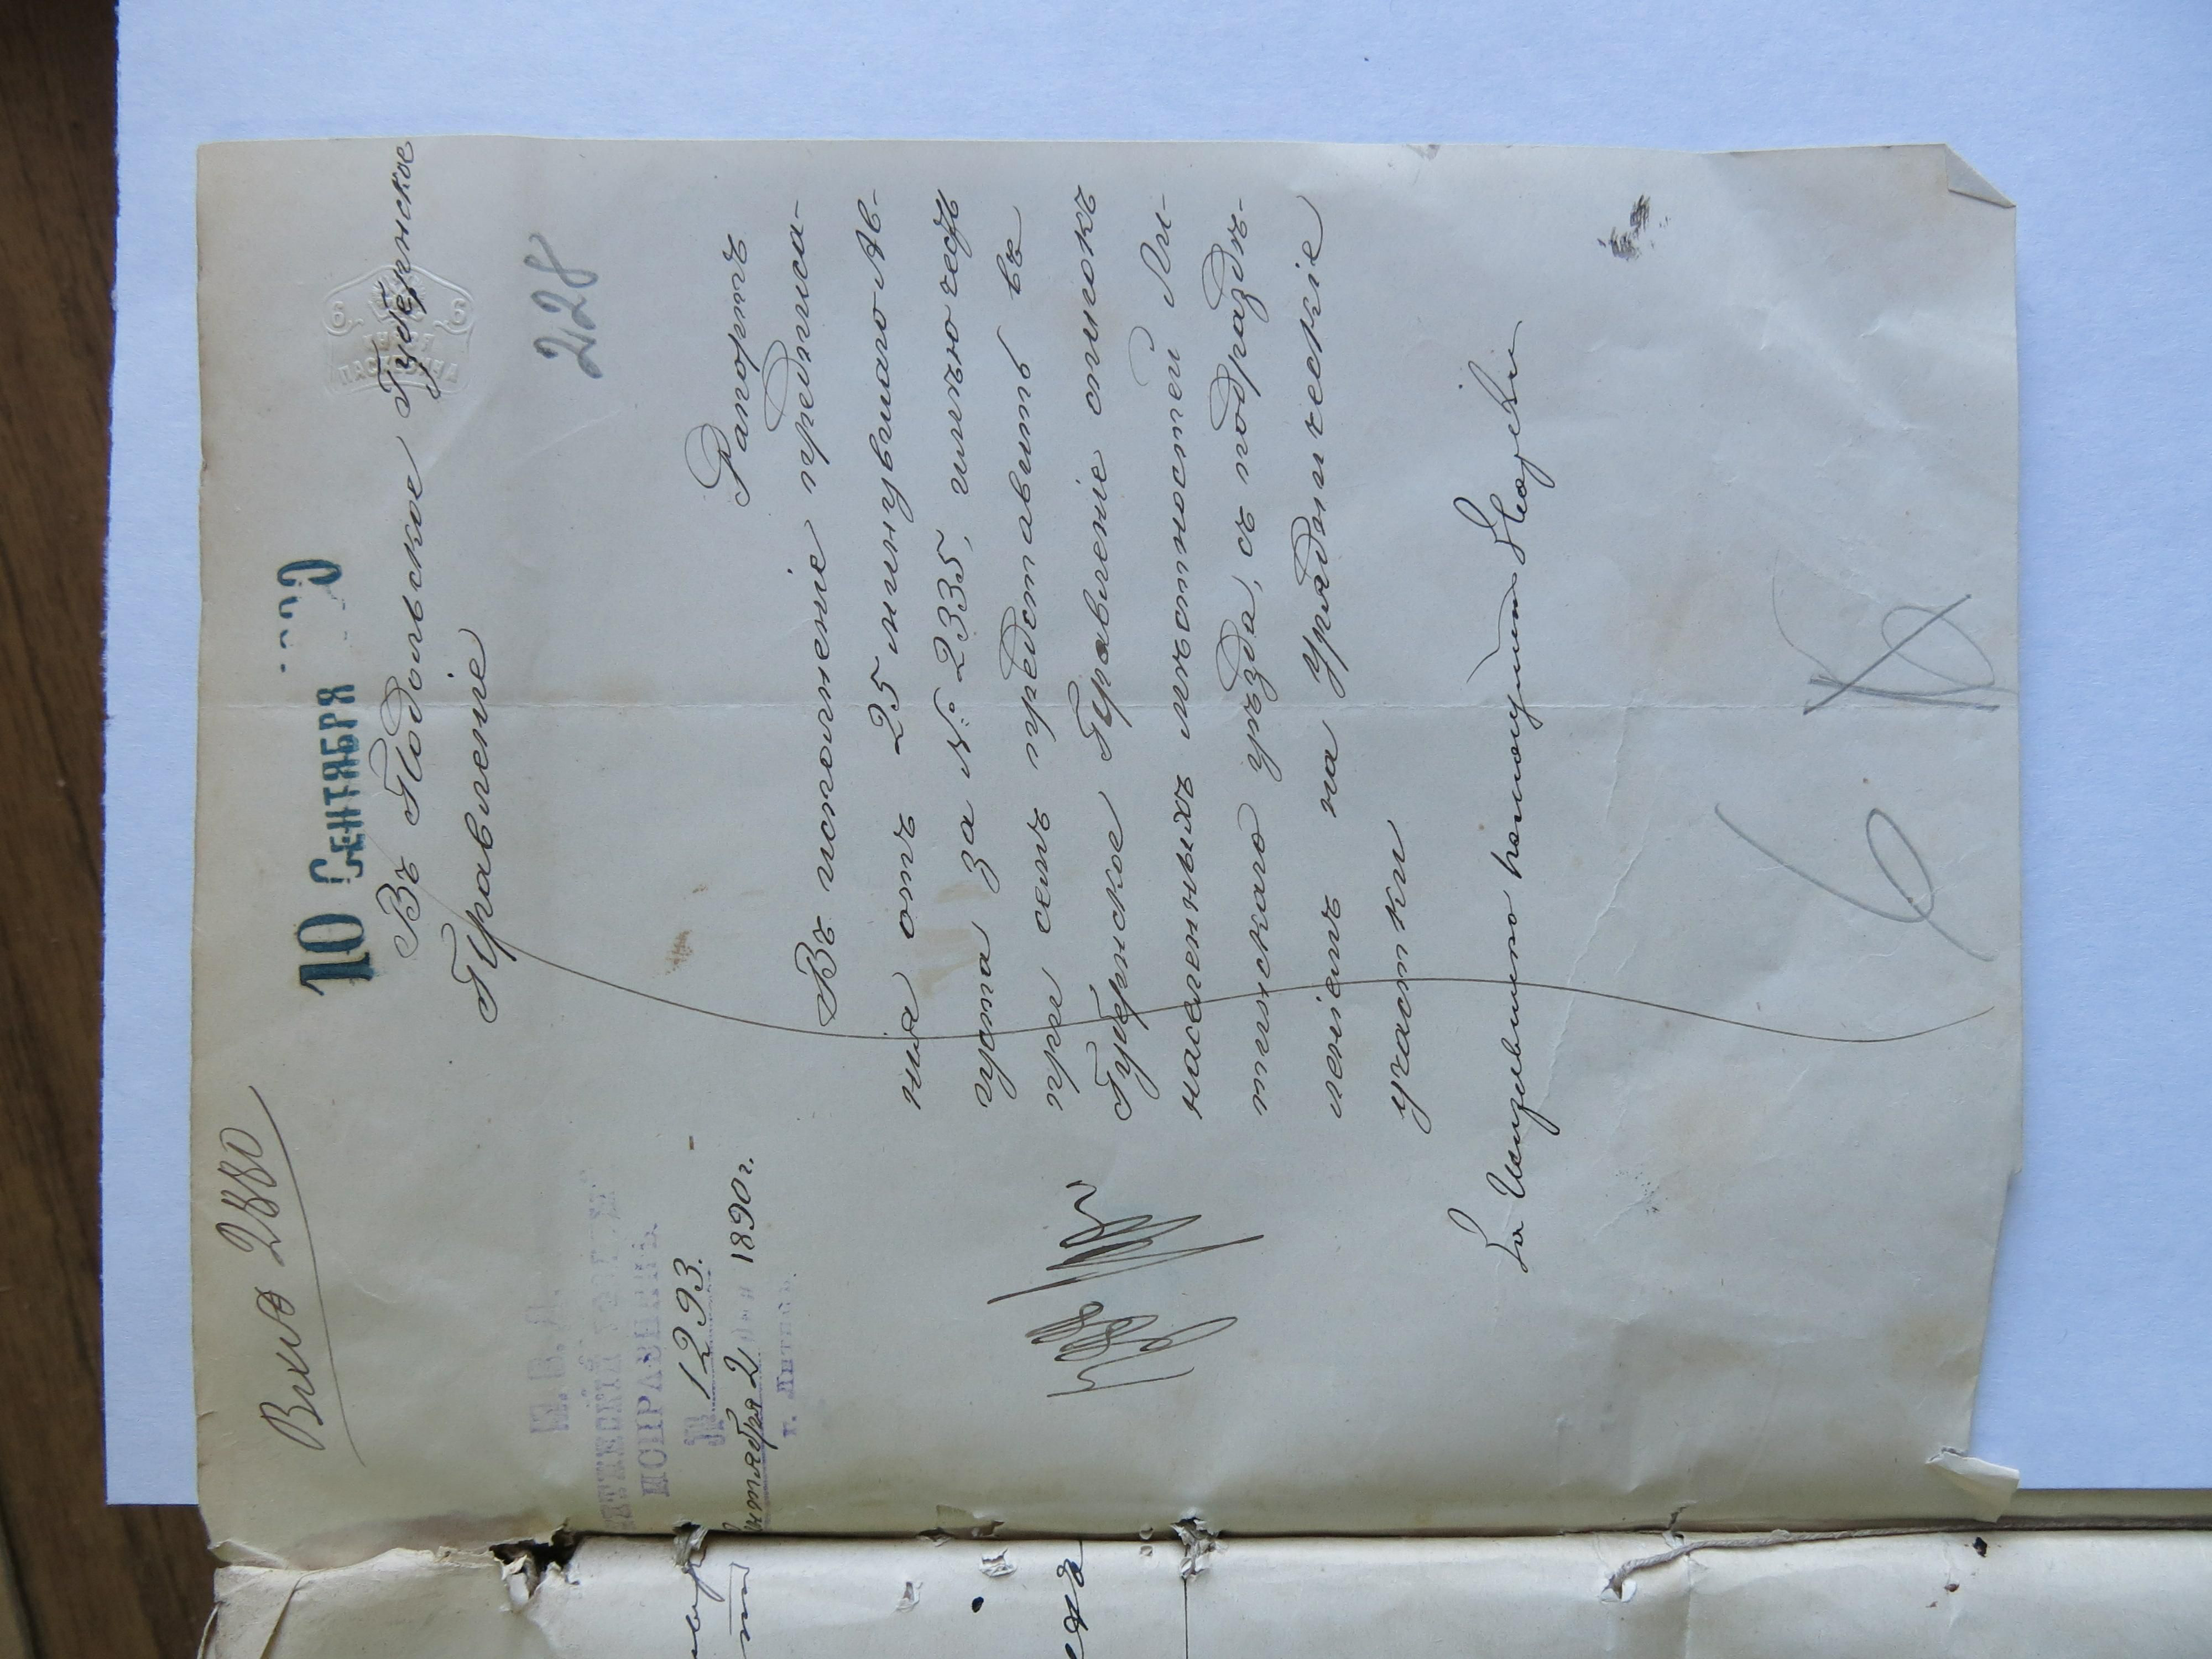 Вход 2880
10 Сентября
Въ Подольское Губернское
Правленіе
228
М. В. Д.
ИСПРАВНИКЪ
№ 1293.
Сентября 2 дня 1890 г.
г. Литинъ.
Рапортъ
Въ исполненіе предписа-
нія отъ 25 минувшаго Ав-
густа за № 2335, имѣю честь
при семъ представить въ
Губернское Правленіе списокъ
населенныхъ мѣстностей Ли-
тинскаго уѣзда, съ подраздѣ-
леніемъ на Урядническіе
участки
За Исправника
6